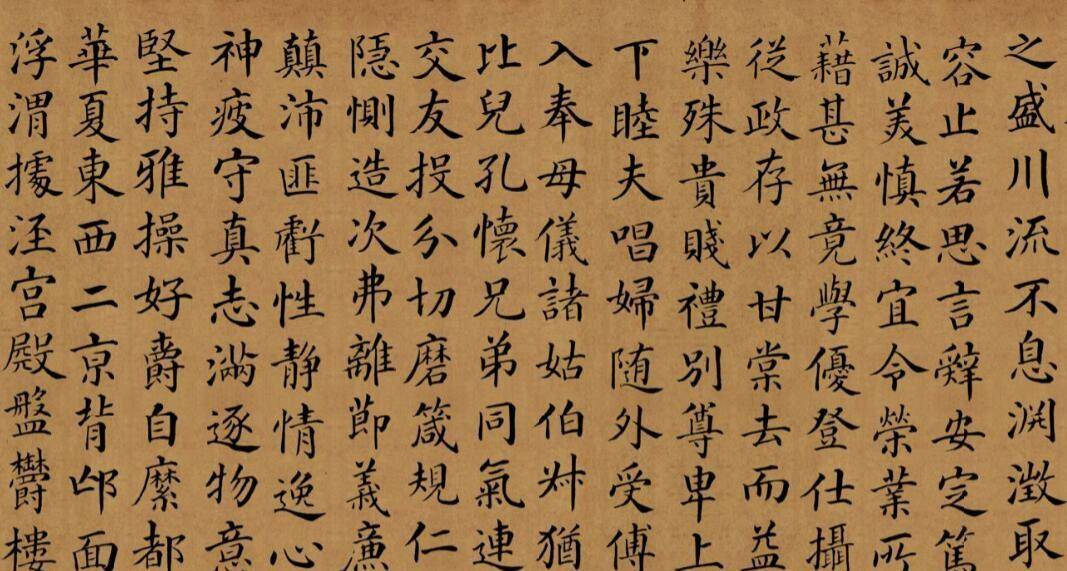 之盛川流不息渊澂取
容止若思言辭安定篤
誠美慎終宜令榮業所
藉甚無竟學優登仕攝
從政存以甘棠去而益
樂殊貴賤禮別尊卑上
下睦夫唱婦随外受傅
入奉母儀諸姑伯叔猶
比兒孔懷兄弟同氣連
交友投分切磨箴規仁
隱惻造次弗離節義廉
顛沛匪虧性静情逸心
神疲守真志滿逐物意
堅持雅操好爵自縻都
華夏東西二亰背邙面
浮渭據涇宫殿盤欝樓